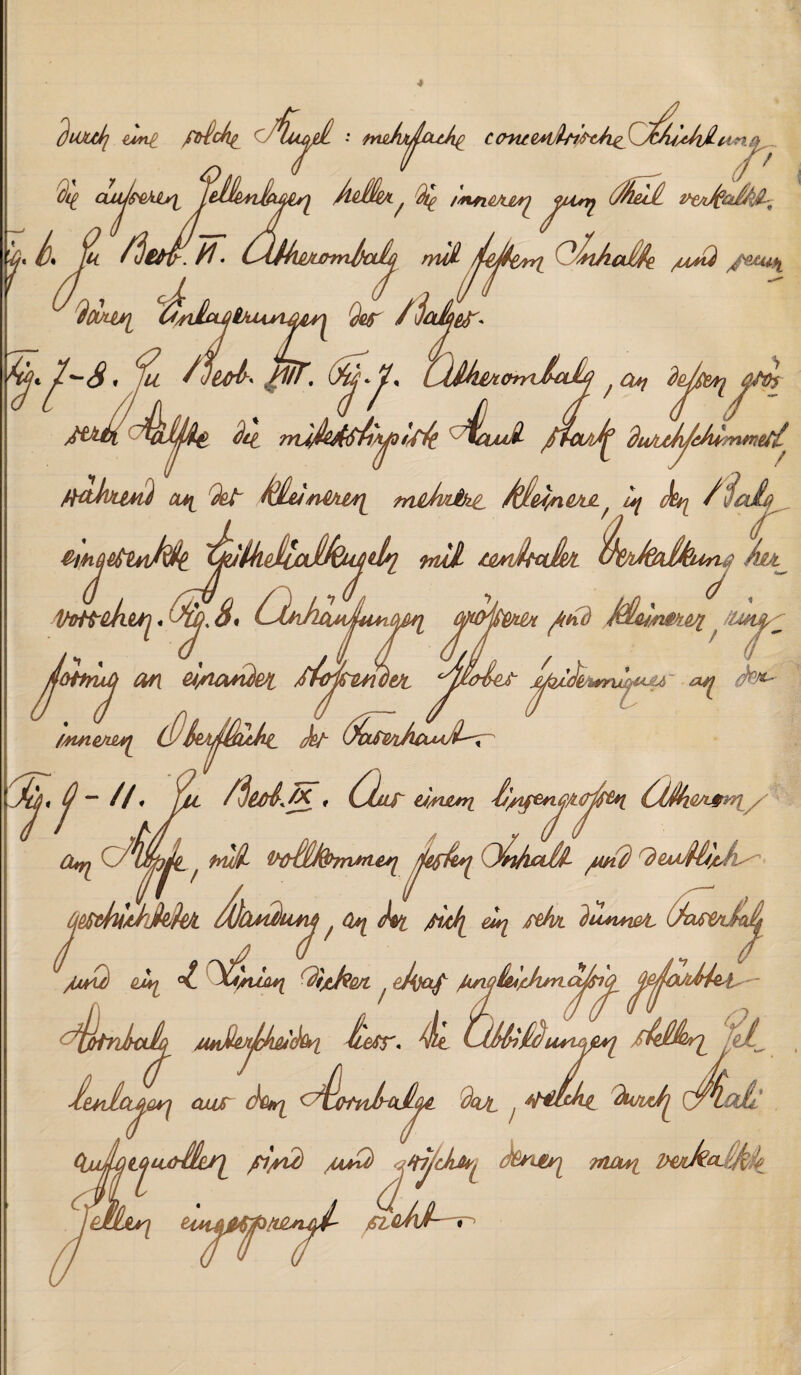 durch eine solche Kugel: mehrfache concentrische Schichtung
die äusseren Zellenlagen heller, die inneren zum Theil verkalkt,
Fig. 6. Zu Beob. VI. Atherombalg mit festem Inhalte und
daren Anlagerungen des Balges.
Fig. 7-8. Zu Beob. VIII. Fig. 7. Atherombalg, an dessen gros
serer Hälfte die mikroskopische Haut stark durchschimmert
während an der kleineren mehrere kleinere, in den Balg
eingesenkte Epithelialkugeln mit centraler Verkalkung her
vorstehen. Fig. 8. Anhäufungen grösserer und kleinerer, ring
förmig an einander stossender Globes épidermiques an der
inneren Oberfläche der Faserhaut.
Fig. 9-11. Zu Beob. IX. Aus einem linsengrossen Atherom
am Kopfe, mit vollkommen festen Inhalt und deutlich
geschichteter Wandung, an der sich ein sehr dünner Faserbalg
und ein 1 Linien dicker, etwas ungleichmässig gefärbter
Hornbalg unterscheiden liess. Die Abbildungen stellen Zel
lenlagen aus dem Hornbalge dar, welche durch Kali
aufgequollen sind und zwischen denen man verkalkte
Zellen eingesprengt sieht.